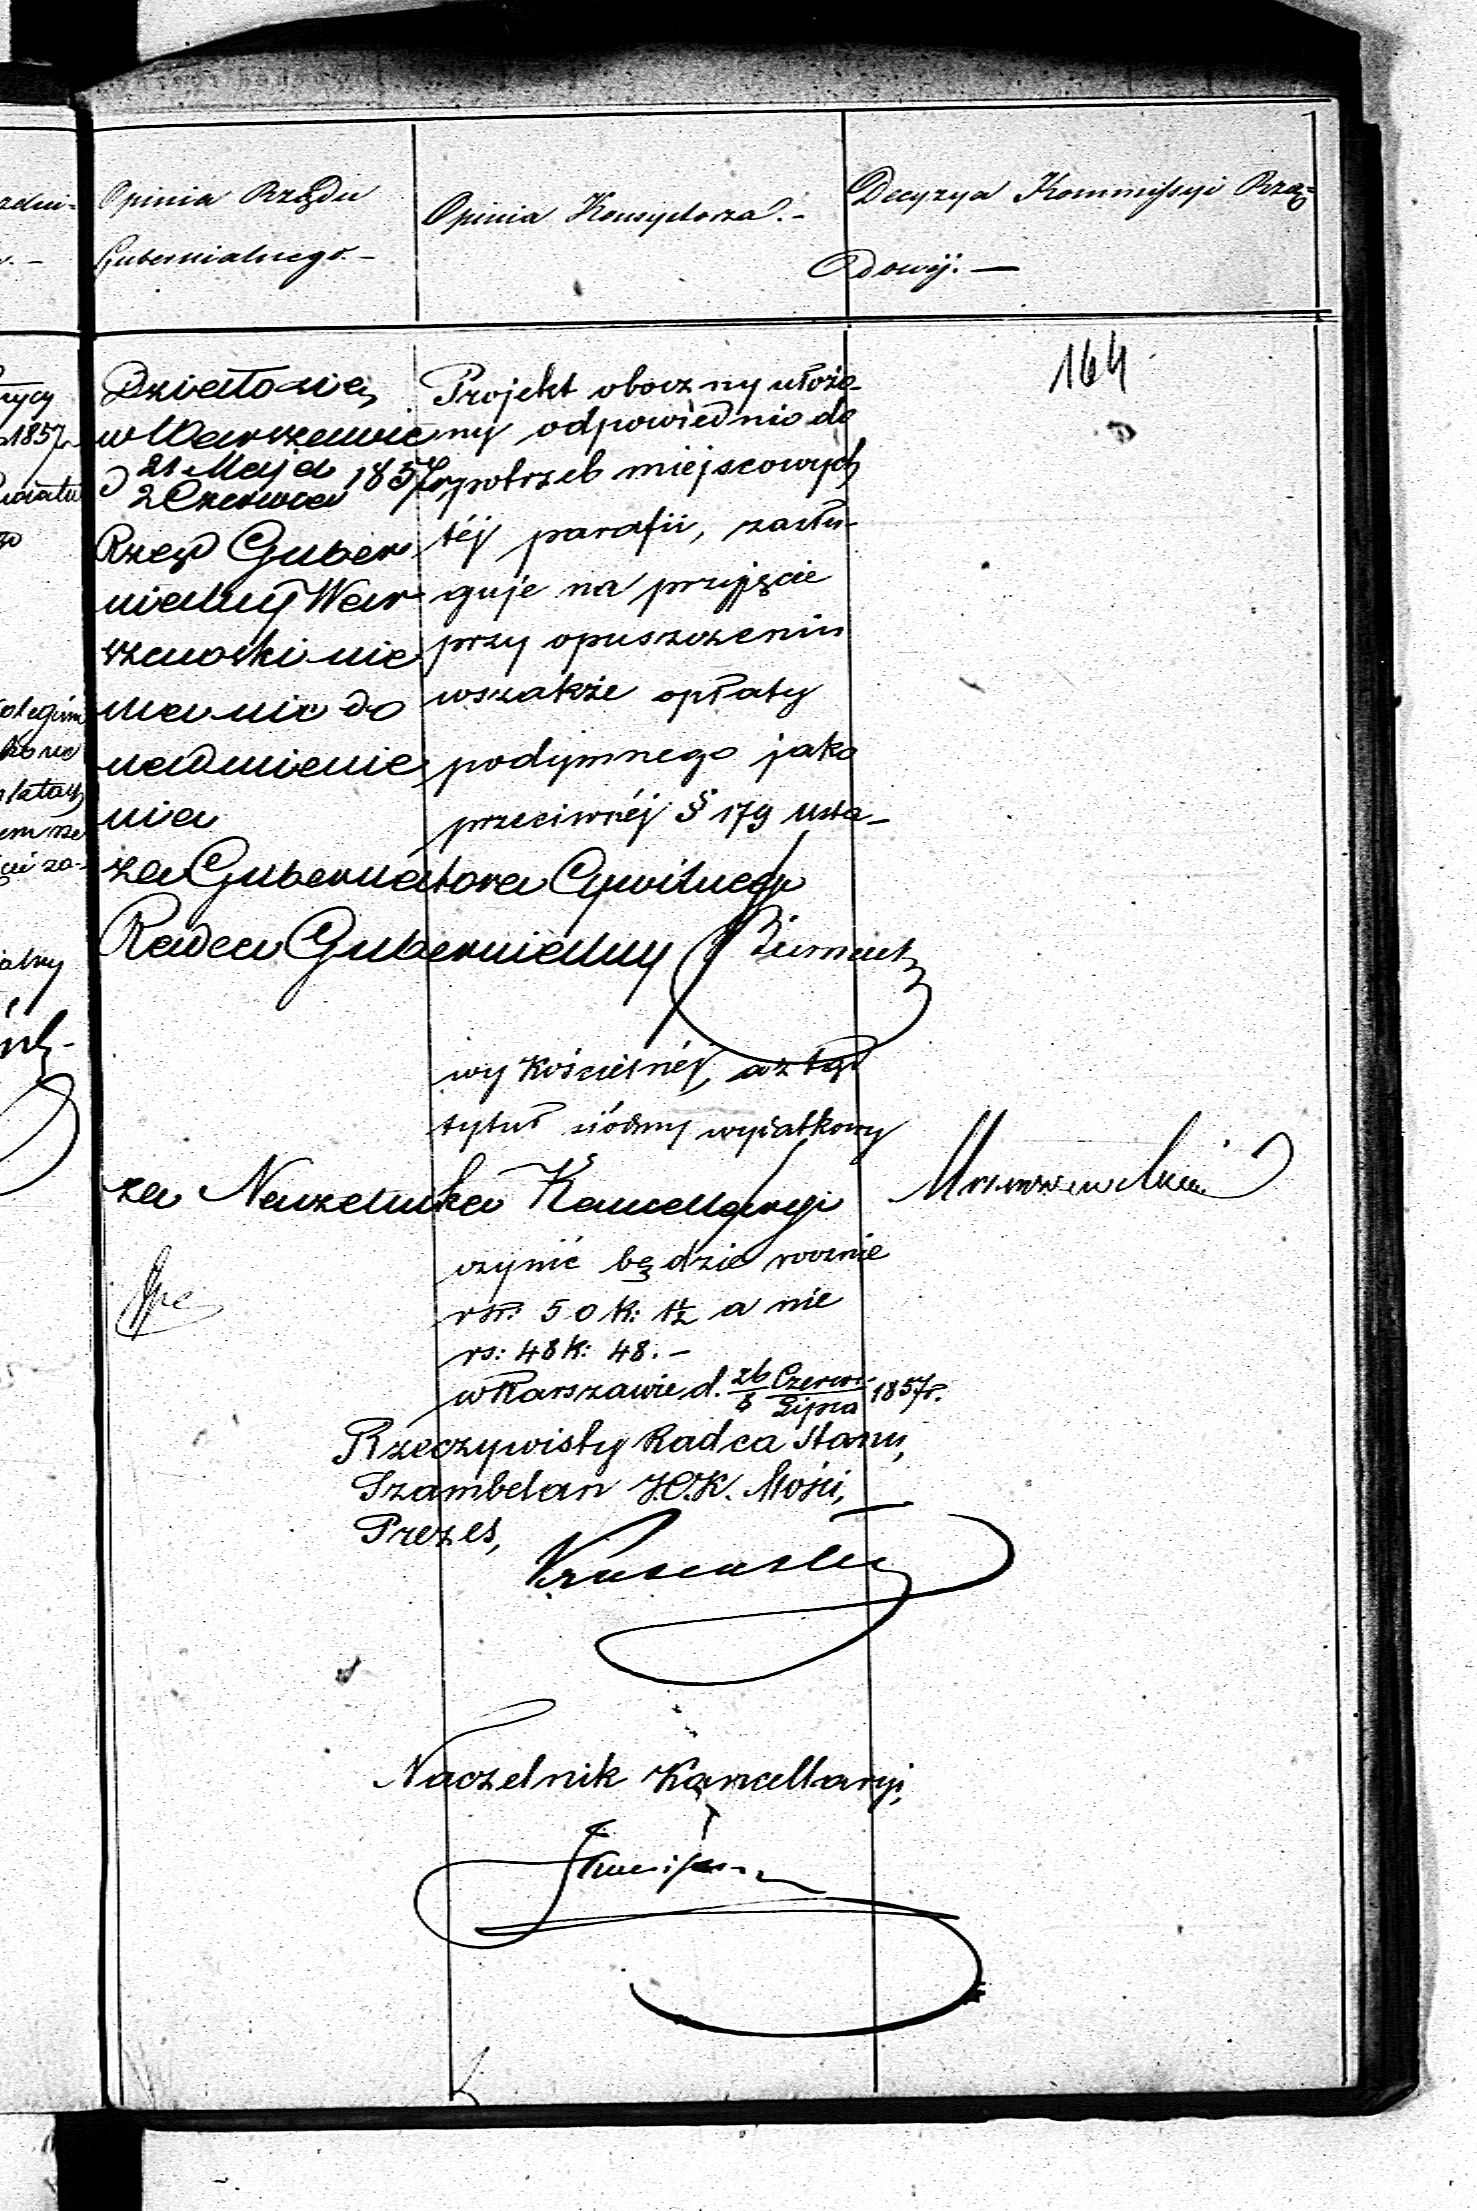 Opinia Rządu
Gubernialnego. –
Opinia Konsystorza. –
Decyzya Kommissyi Rzą=
dowéj. —
164
Działo się
w Warszawie
d 21 Maja
2 Czerwca 1857 r.
Rząd Guber
nialny War
szawski nie
ma nic do
nadmienie
nia
za Gubernatora Cywilnego
Radca Gubernialny
za Naczelnika Kancellaryi
Projekt oboczny ułożo-
ny odpowiednio do
potrzeb miejscowych
téj parafii, zasłu-
guje na przyjęcie
przy opuszczeniu
wszakże opłaty
podymnego jako
przeciwnéj § 179 Usta-
wy Kościelnéj, a ztąd
tytuł siódmy wydatkowy
czynić będzie rocznie
rsr. 50 k: 1½ a nie
rs: 48 k: 48. –
w Warszawie d. 26 Czerw.
8 Lipca 1857 r.
Rzeczywisty Radca Stanu,
Szambelan J.C.K. Mości,
Prezes,
Naczelnik Kancellaryi,